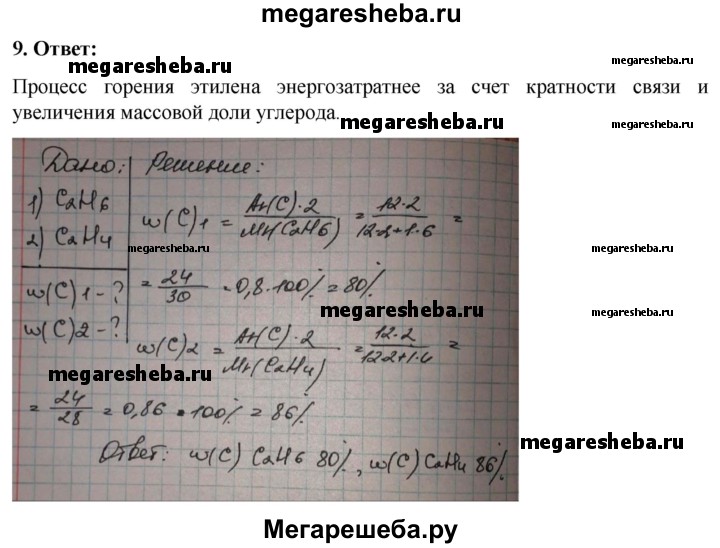 megaresheba.ru
9. Ответ:
megaresheba.ru
megaresheba.ru
megaresheba.ru
Процесс горения этилена энергозатратнее за счет кратности связи и
увеличения массовой доли углерода.
megaresheba.ru
megaresheba.ru
Дано: Решение:
1) C2H6
2) C2H4
w(C)1 = Ar(C)·2 / Mr(C2H6) = 12·2 / 12·2+1·6 =
megaresheba.ru
megaresheba.ru
w(C)1 - ?
= 24/30 = 0,8·100% = 80%
megaresheba.ru
megaresheba.ru
w(C)2 - ?
w(C)2 = Ar(C)·2 / Mr(C2H4) = 12·2 / 12·2+1·4 =
megaresheba.ru
= 24/28 = 0,86·100% = 86%
megaresheba.ru
Ответ: w(C) C2H6 80%, w(C) C2H4 86%.
Мегарешеба.ру